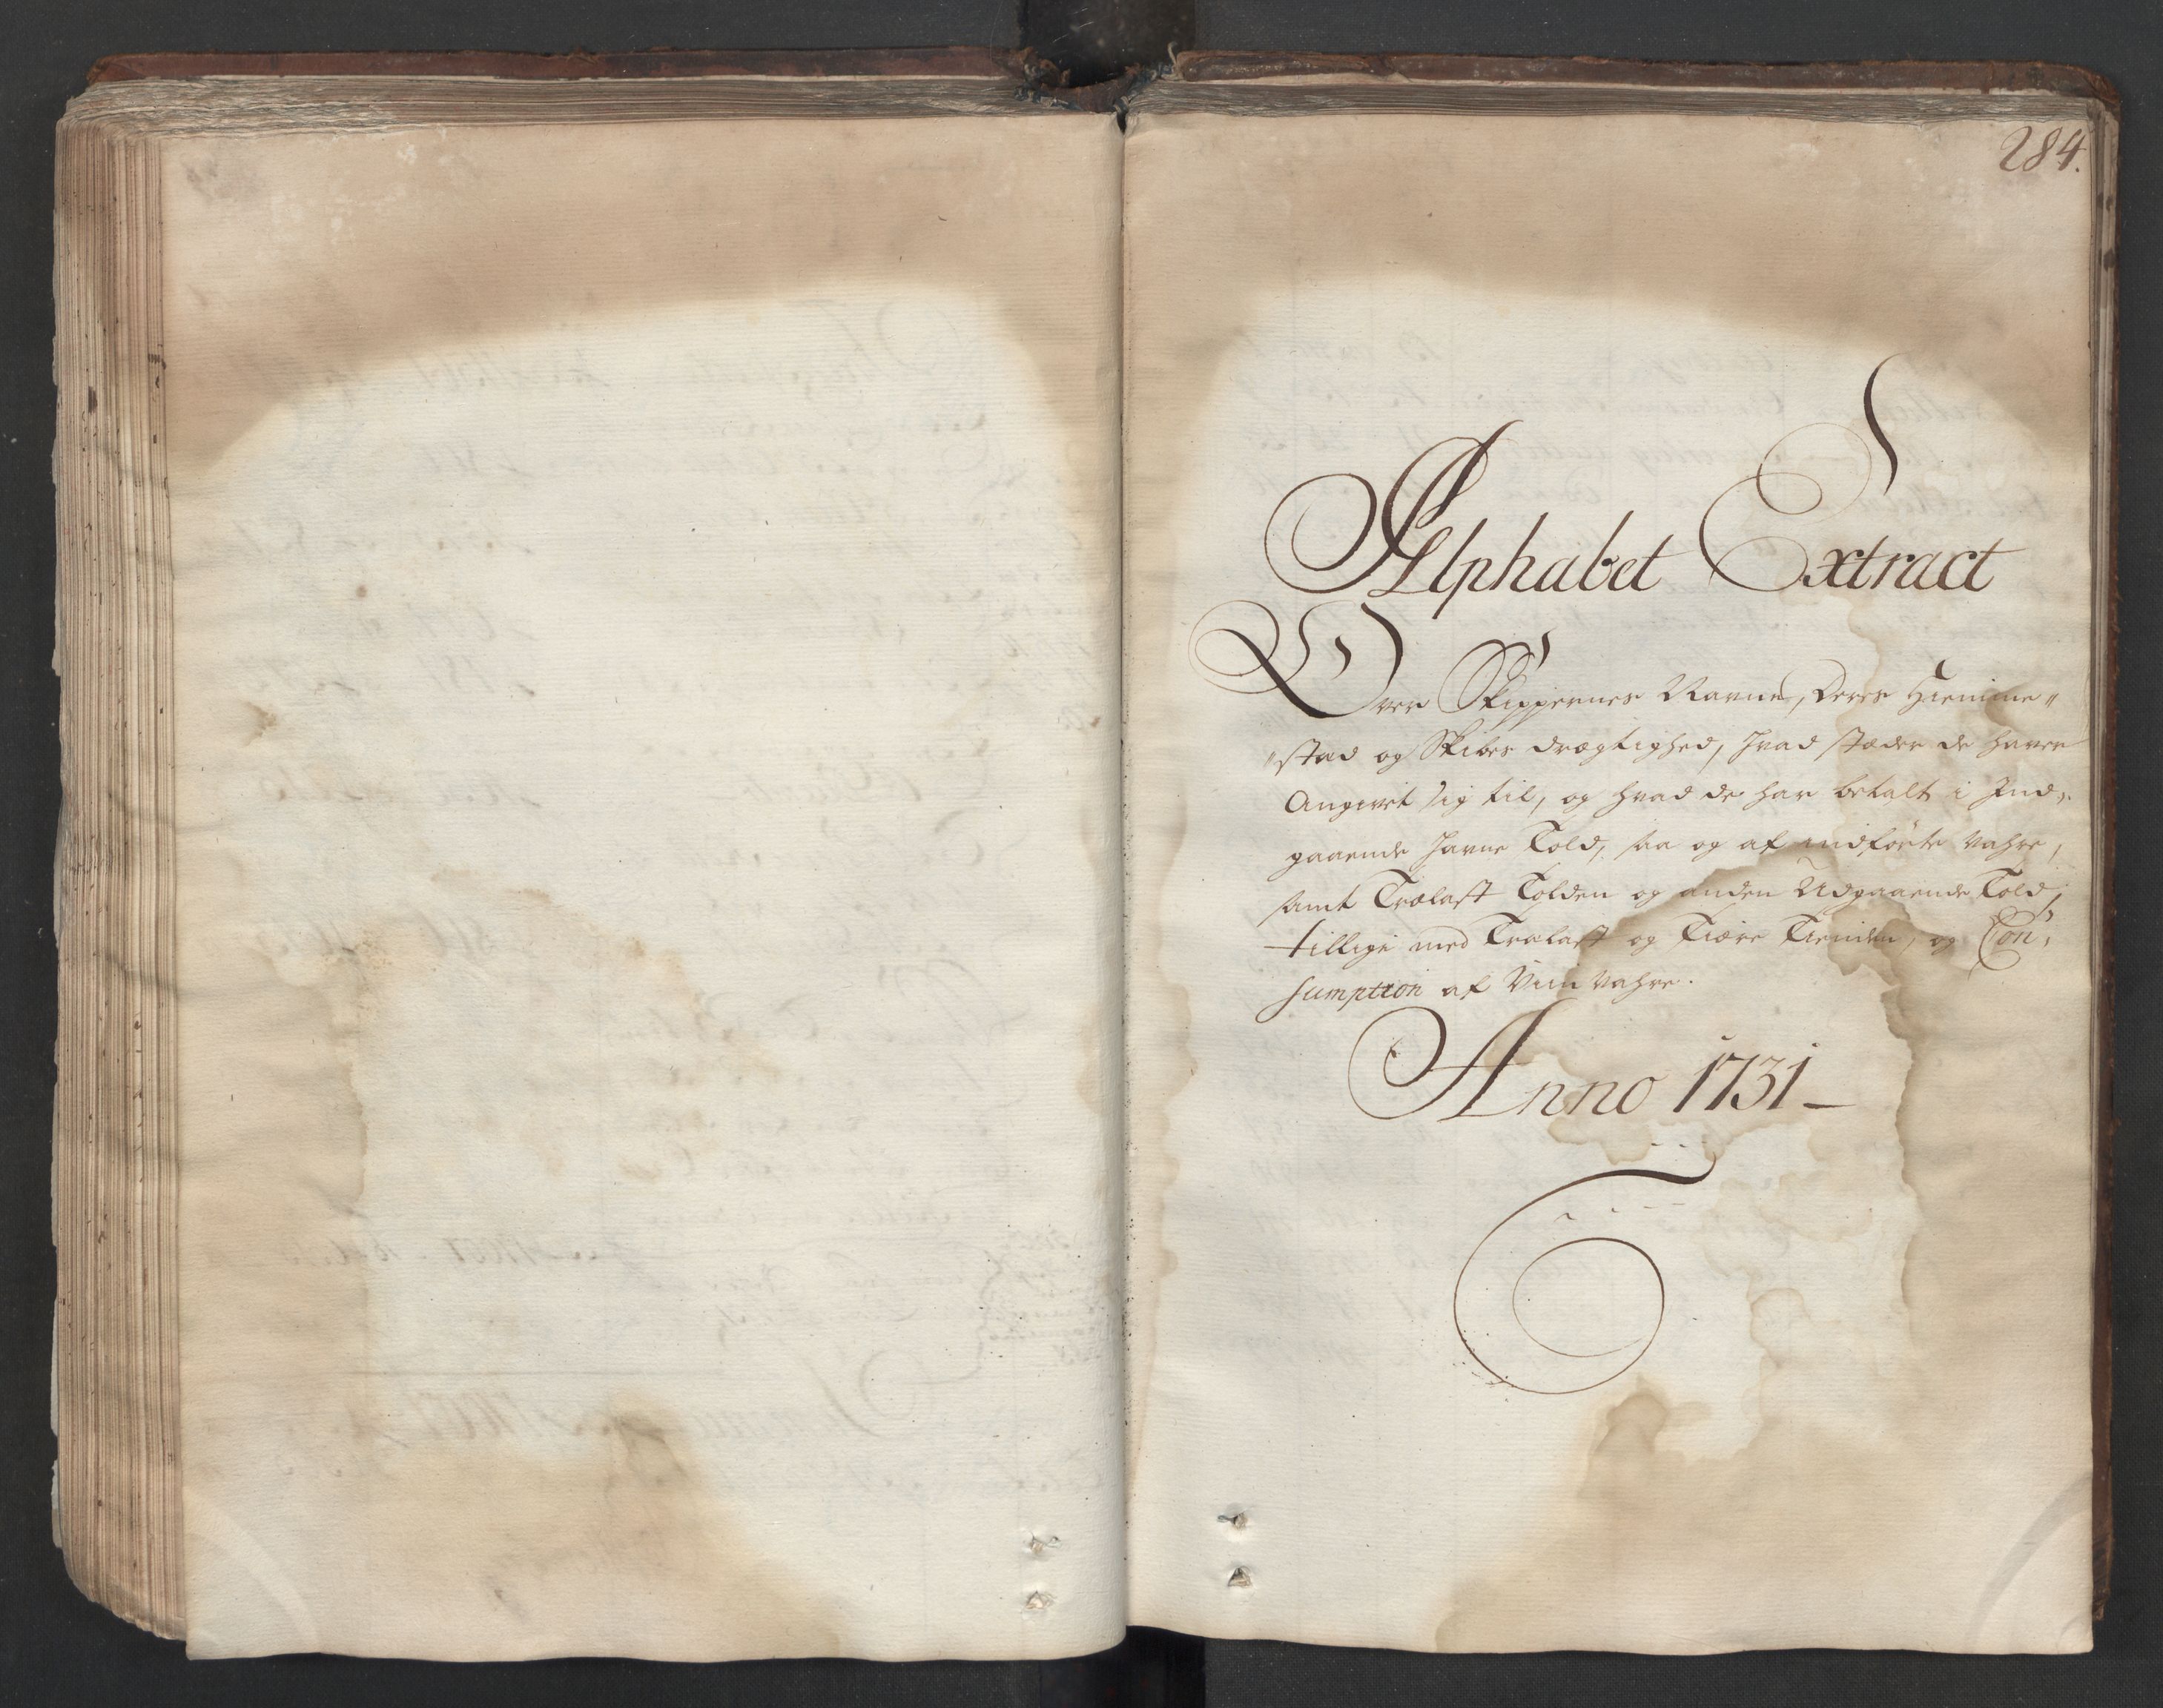 284.
Alphabet Extract
Over Skippernes Navne, Deres Hiemme„
„stad og Skibes drægtighed, hvad stæder de haver
Angivet sig til, og hvad de har betalt i Ind„
gaaende havne Told, saa og af indførte vahre,
samt Trælast Tolden og anden Udgaaende Told,
tillige med Trælast og Tiære Tienden, og Con„
sumption af Viin vahre.
Anno 1731 —